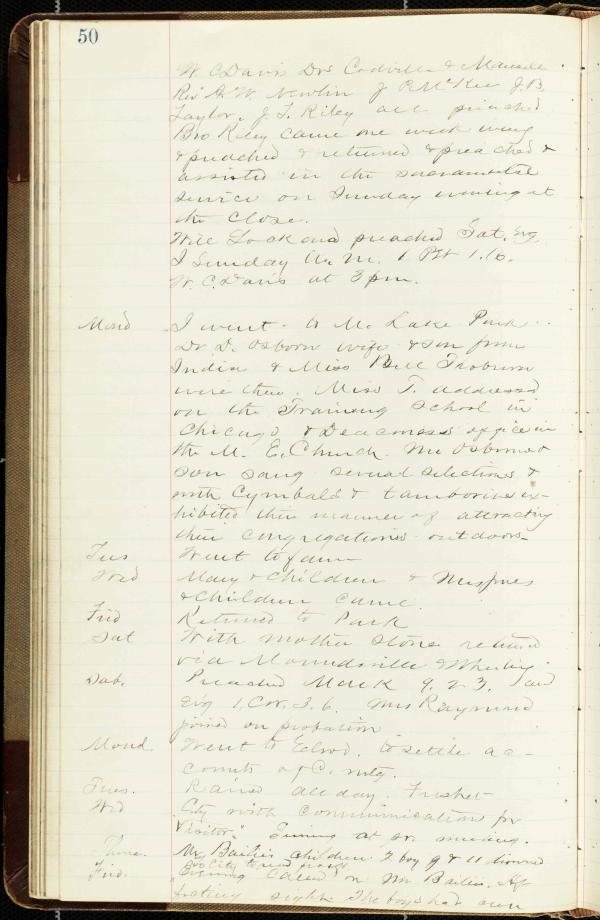 50
W. C. Davis Drs Codville & Mansell
Revs A. W. Newlin J P. McKee J. B.
Taylor, J. T. Riley all preached
Bro Riley came one week
& preached & returned & preached &
assisted in the sacramental
service on Sunday evening at
the close.
Will Lockard preached Sat. Evg,
I Sunday A. M. 1 Pet 1.16.
W. C. Davis at 3 pm.
Mond I went to Mt. Lake Park
Dr D. Osborn wife & son from
India & Miss Bell Thoburn
were there. Miss T. addressed
on the Training School in
Chicago & Deaconess office in
the M. E. Church. Mr Osborn &
son sang several selections &
with Cymbals & tamborines ex-
hibited their manner of attracting
their congregations outdoors.
Tues Went to farm
Wed Mary & Children & Mrs
& Children came.
Frid Returned to Park
Sat With mother Stone returned
via Moundsville & Wheeling
Sab. Preached Mark 9.23. and
Evg 1. Cor. 3.6. Mrs Raymond
joined on probation
Mond Went to to settle ac-
counts of C. mtg.
Tues. Rained all day.
Wed City with communications for
"Visitor." Evening at meeting.
Thur. Mr Bailies children 2 boy 9 & 11 drowned
Frid. Evening Called on Mr Bailies.
sight. The boys had own